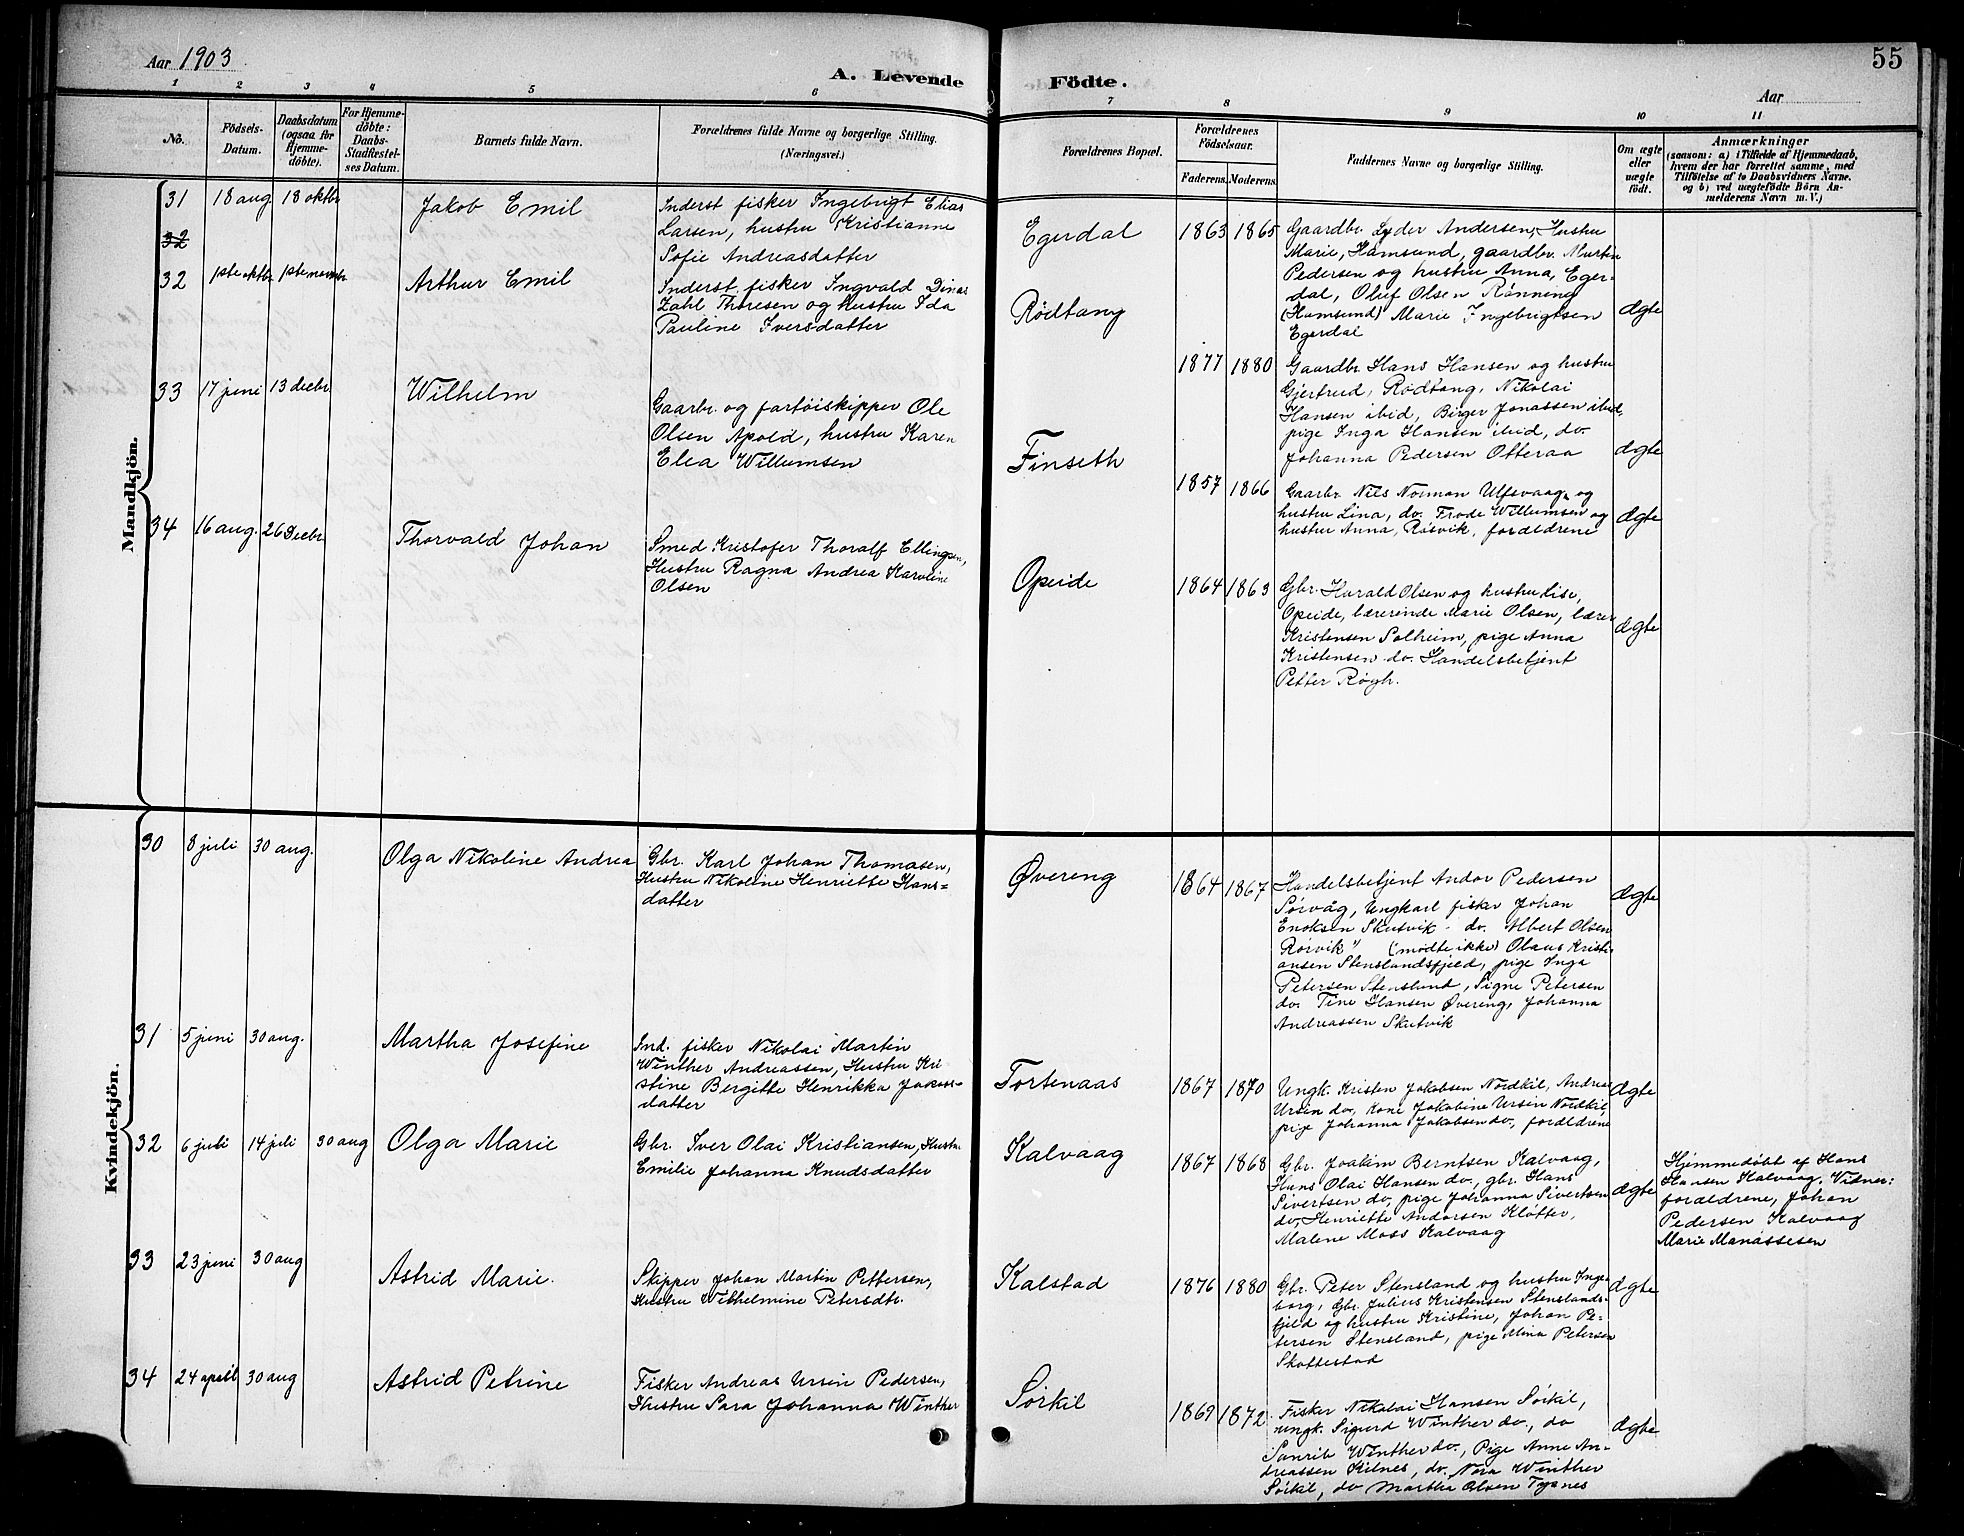 Aar 1903
A. Levende Födte.
55
Aar
1 2 3 4 5 6 7 8 9 10 11
No.
Födsels-Datum.
Daabsdatum (ogsaa for Hjemme-döbte).
For Hjemme-döbte: Daabs-Stadfæstel-ses Datum.
Barnets fulde Navn.
Forældrenes fulde Navne og borgerlige Stilling.
(Næringsvei.)
Forældrenes Bopæl.
Forældrenes Födselsaar.
Faderens. Moderens.
Faddernes Navne og borgerlige Stilling.
Om ægte eller uægte født.
Anmærkninger
(saasom: a) i Tilfælde af Hjemmedaab,
hvem der har forrettet samme, med
Tilföielse af to Daabsvidners Navne,
og b) ved uægtefödte Börn An-
melderens Navn m. V.)
Mandkjön.
31 18 aug 18 oktbr Jakob Emil
Inderst fisker Ingebrigt Elias
Larsen, hustru Kristianne
Sofie Andreasdatter
Egerdal 1863 1865
Gaardbr. Lyder Andersen, Hustru
Marie, Hamsund, gaardbr. Martin
Pedersen og hustru Anna, Eger-
dal, Oluf Olsen Rönning
(Hamsund) Marie Ingebrigtsen
Egerdal
ægte
32
32 1ste oktbr. 1ste novembr. Arthur Emil
Inderst. fisker Ingvald Dinas
Zahl Thoresen og Hustru Ida
Pauline Iversdatter
Rödtang 1877 1880
Gaardbr Hans Hansen og hustru
Gjertrud, Rødtang, Nikolai
Hansen ibid, Birger Jonassen ibid,
pige Inga Hansen ibid, do.
Johanna Pedersen Otteraa
ægte
33 17 juni 13 decbr Wilhelm
Gaarbr. og fartøiskipper Ole
Olsen Apold, hustru Karen
Elea Willumsen
Finseth 1857 1866
Gaarbr. Nils Norman Ulfsvaag og
hustru Lina, do. Frode Willumsen og
hustru Anna, Røsvik, forældrene
ægte
34 16 aug. 26 Decbr Thorvald Johan
Smed Kristofer Thoralf Ellingsen,
Hustru Ragna Andrea Karoline
Olsen
Opeide 1864 1863
Gbr. Harald Olsen og hustru Lise,
Opeide, lærerinde Marie Olsen, lærer
Kristensen Solheim, pige Anna
Kristensen do. Handelsbetjent
Petter Røgh.
ægte
Kvindekjön.
30 8 juli 30 aug. Olga Nikoline Andrea
Gbr. Karl Johan Thomasen,
Hustru Nikoline Henriette Hans-
datter
Øvereng 1864 1867
Handelsbetjent Andor Pedersen
Sørvåg, Ungkarl fisker Johan
Enoksen Skutvik - do. Albert Olsen
Rørvik" (mødte ikke) Olaus Kristi-
ansen Stenslandsfjeld, pige Inga
Petersen Stensland, Signe Petersen
do. Tine Hansen Øvereng, Johanna
Andreassen Skutvik
ægte
31 5 juni 30 aug. Martha Josefine
Ind. fisker Nikolai Martin
Winther Andreassen, Hustru Kri-
stine Bergitte Henrikka Jakobs-
datter
Tortenaas 1867 1870
Ungk. Kristen Jakobsen Nordkil, Andreas
Ursin do, kone Jakobine Ursin Nordkil,
pige Johanna Jakobsen do., forældrene
ægte
32 6 juli 14 juli 30 aug Olga Marie
Gbr. Iver Olai Kristiansen, Hustru
Emilie Johanna Knudsdatter
Kalvaag 1867 1868
Gbr. Joakim Berntsen Kalvaag,
Hans Olai Hansen do., gbr. Hans
Sivertsen do, pige Johanna Sivertsen
do, Henriette Andorsen Kløfter,
Malene Moss Kalvaag
ægte
Hjemmedøbt af Hans
Hansen Kalvaag, Vidner:
forældrene, Johan
Pedersen Kalvaag
Marie Manassesen
33 23 juni 30 aug Astrid Marie.
Skipper Johan Martin Pettersen,
Hustru Wilhelmine Petersdtr.
Kalstad 1876 1880
Gbr. Peter Stensland og hustru Inge-
borg, Gbr. Julius Kristensen Stenslands-
fjeld og hustru Kristine, Johan Pe-
tersen Stensland, pige Mina Petersen
Skottestad
ægte
34 24 april 30 aug Astrid Petrine
Fisker Andreas Ursin Pedersen,
Hustru Sara Johanna Winther
Sørkil 1869 1872
Fisker Nikolai Hansen Sørkil,
ungk. Sigurd Winther do., do
Winther do., Pige Anne An-
dreassen Kilnes, do. Nora Winther
Sørkil, do Martha Olsen
ægte